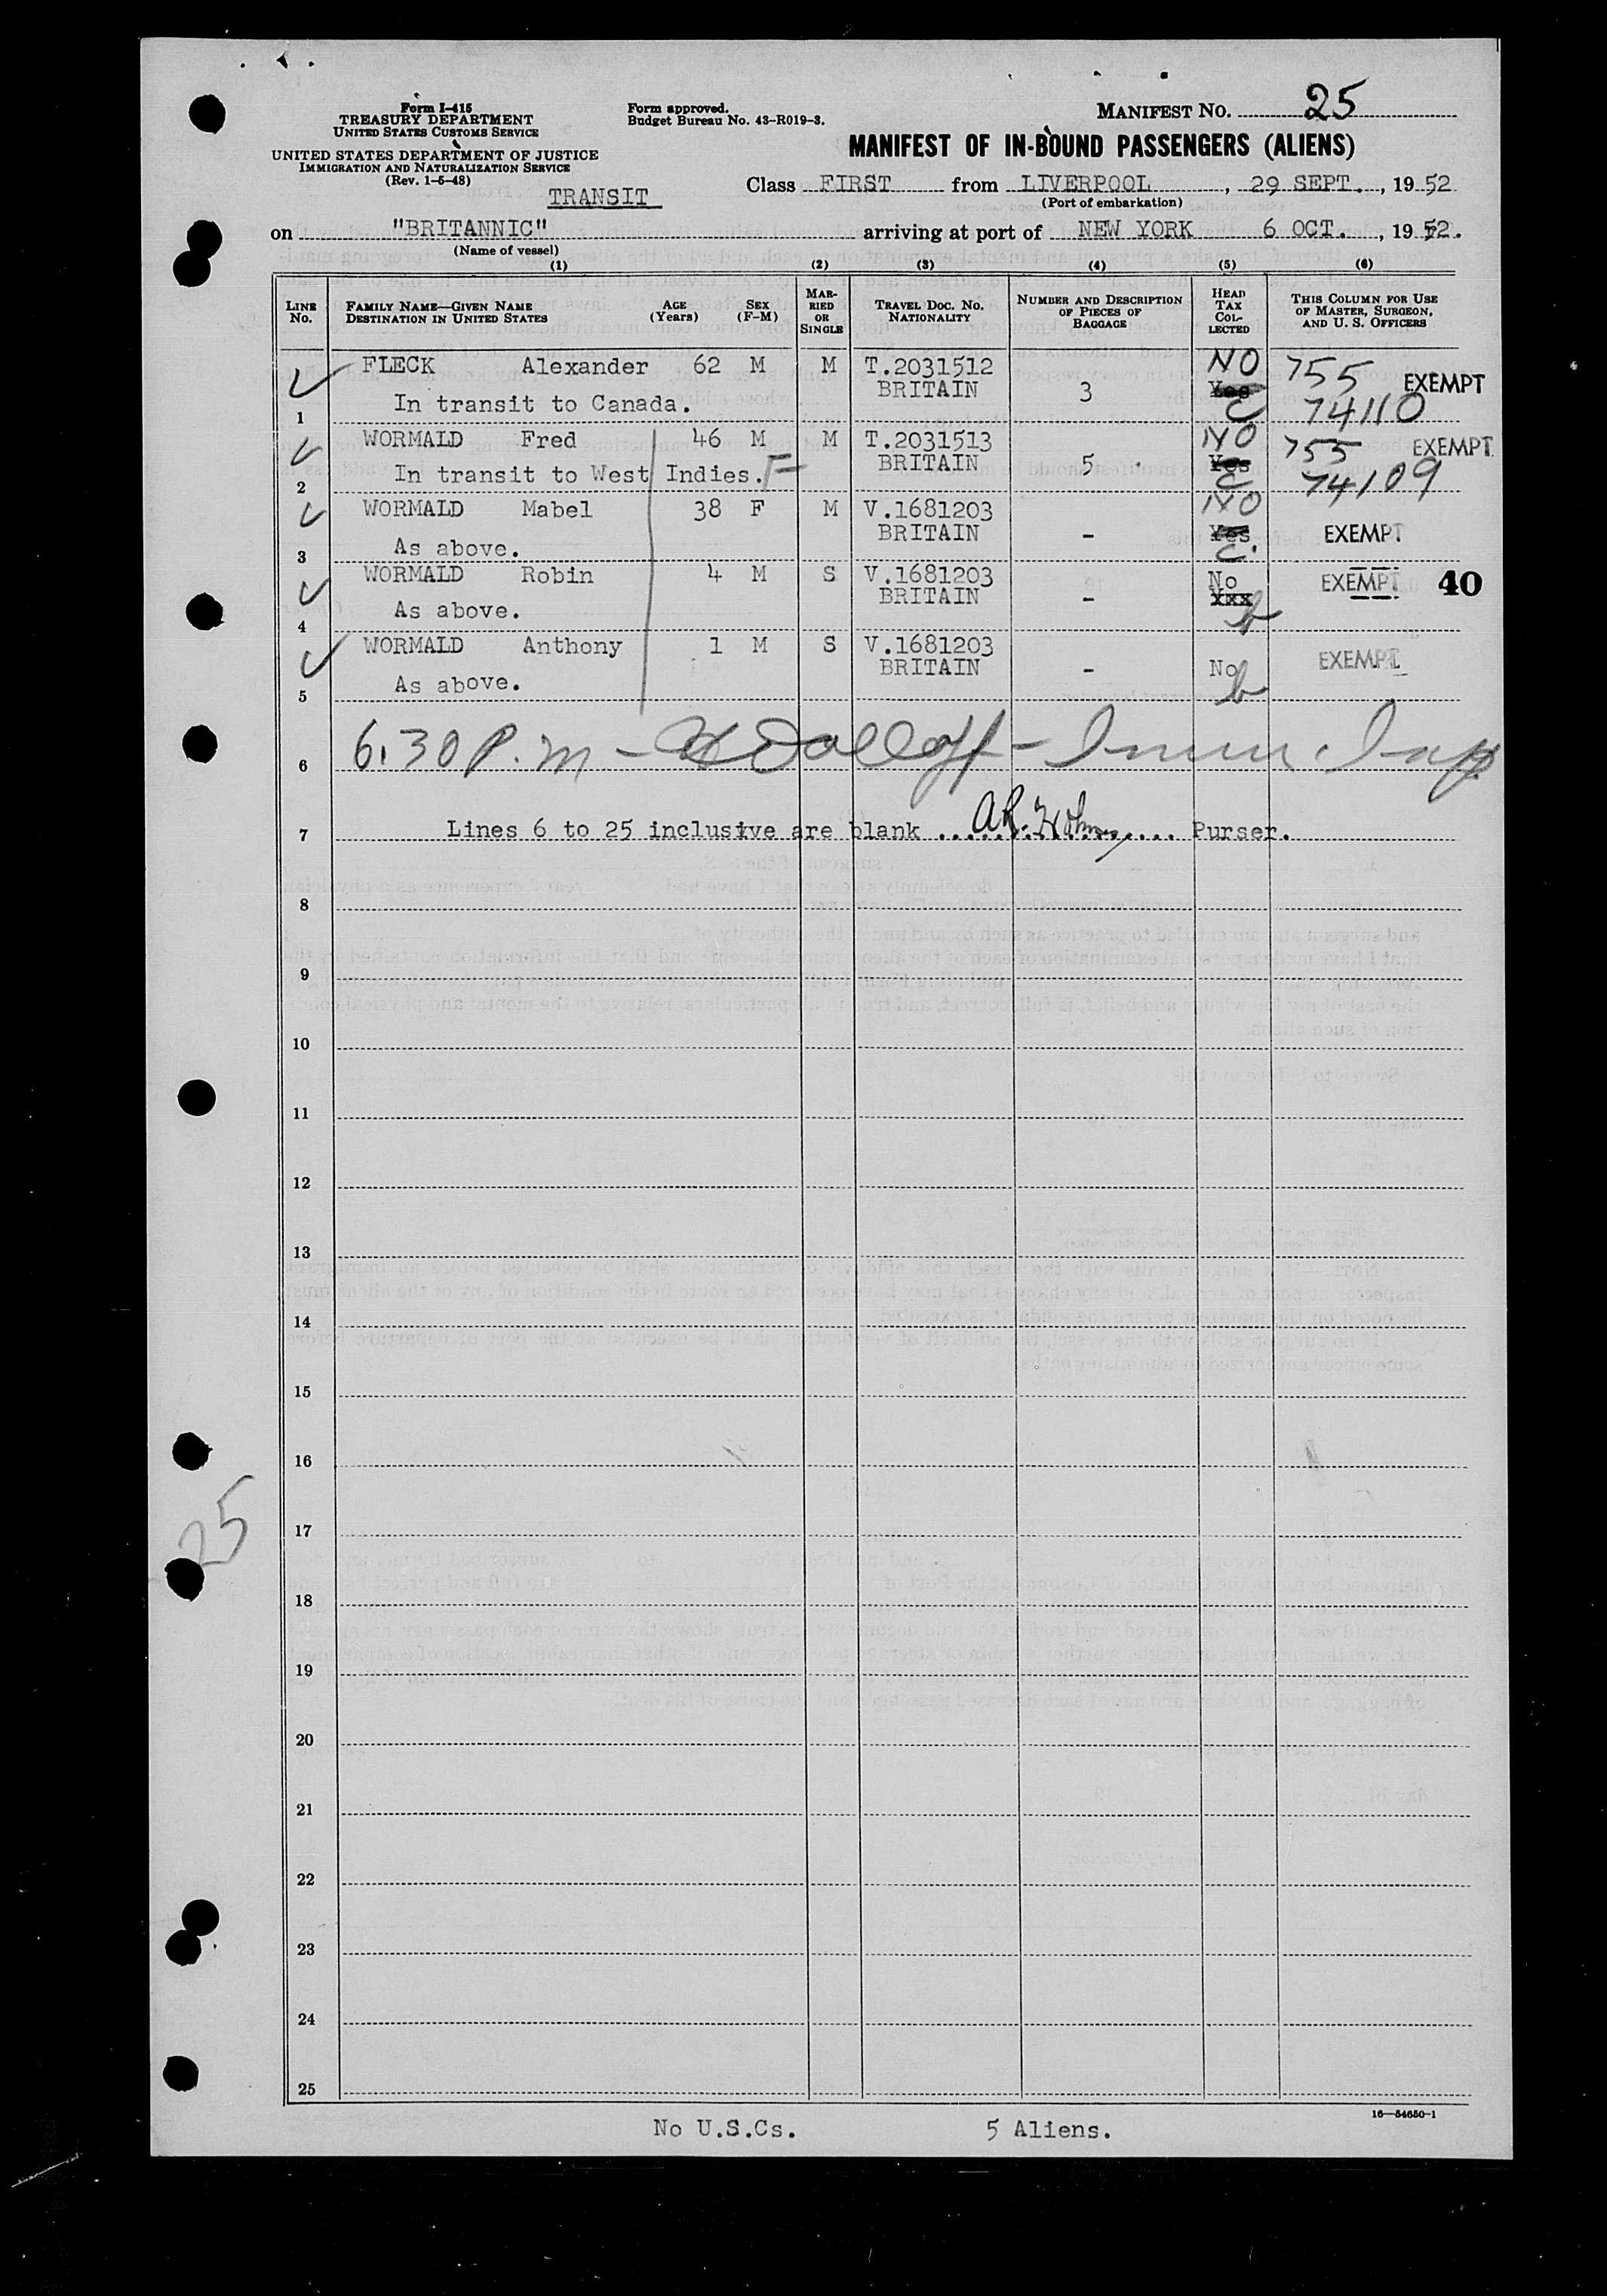 Form I-415
TREASURY DEPARTMENT
UNITED STATES CUSTOMS SERVICE
UNITED STATES DEPARTMENT OF JUSTICE
IMMIGRATION AND NATURALIZATION SERVICE
(Rev. 1-5-48)
Form approved.
Budget Bureau No. 43-R019-3.
MANIFEST NO. 25
MANIFEST OF IN-BOUND PASSENGERS (ALIENS)
TRANSIT
Class FIRST from LIVERPOOL, 29 SEPT., 1952
(Port of embarkation)
on "BRITANNIC" arriving at port of NEW YORK 6 OCT., 1952.
(Name of vessel)
(1) (2) (3) (4) (5) (6)
LINE No. FAMILY NAME—GIVEN NAME DESTINATION IN UNITED STATES AGE (Years) SEX (F-M) MARRIED OR SINGLE TRAVEL DOC. NO. NATIONALITY NUMBER AND DESCRIPTION OF PIECES OF BAGGAGE HEAD TAX COLLECTED THIS COLUMN FOR USE OF MASTER, SURGEON, AND U. S. OFFICERS
FLECK Alexander 62 M M T.2031512 NO 755
BRITAIN 3 Yes EXEMPT
1 In transit to Canada. C 74110
WORMALD Fred 46 M M T.2031513 NO 755 EXEMPT
BRITAIN 5 Yes
2 In transit to West Indies. F C 74109
WORMALD Mabel 38 F M V.1681203 NO
BRITAIN - Yes EXEMPT
3 As above. C.
WORMALD Robin 4 M S V.1681203 No EXEMPT 40
BRITAIN - xxx
4 As above. b
WORMALD Anthony 1 M S V.1681203 EXEMPT
BRITAIN - No
5 As above. b
6 6.30 P.m - - Immi. Insp
7 Lines 6 to 25 inclusive are blank ........ Purser.
8
9
10
11
12
13
14
15
16
17
25
18
19
20
21
22
23
24
25
16—54650-1
No U.S.Cs. 5 Aliens.